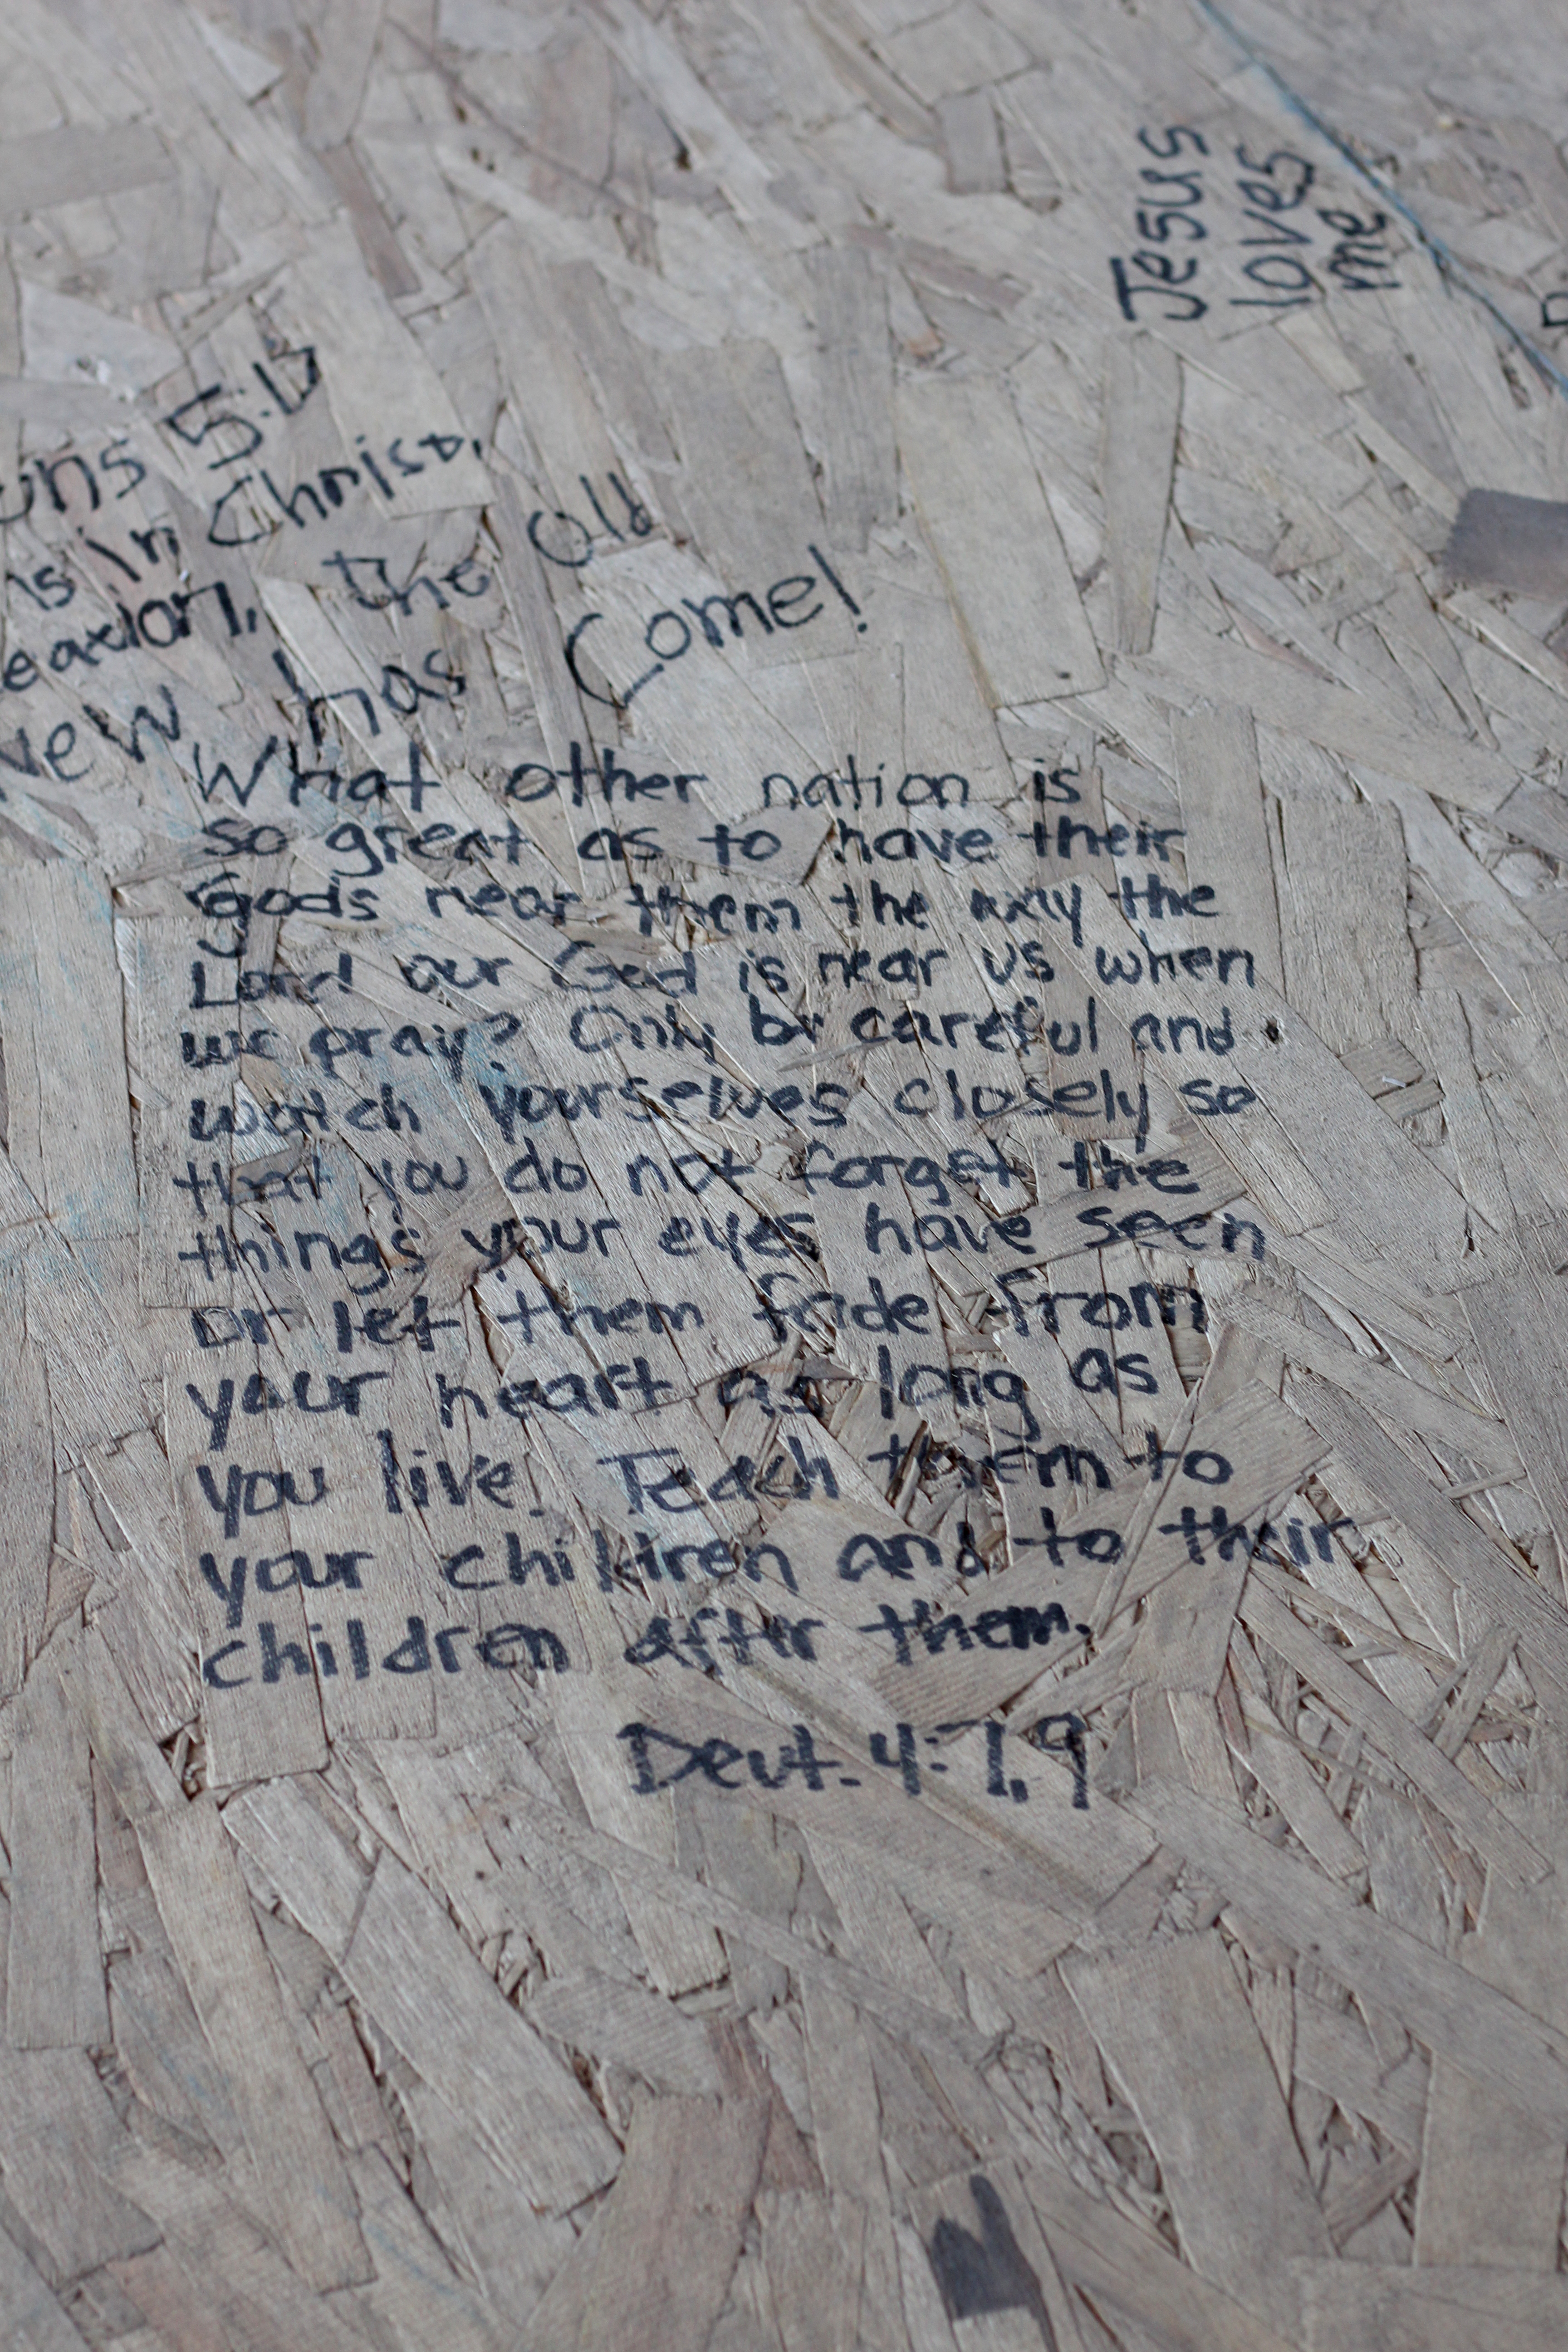 Jesus
loves
me
ons 5:17
is in Christ,
eation, the old
new has Come!
What other nation is
so great as to have their
Gods near them the way the
Lord our God is near us when
we pray? Only be careful and
watch yourselves closely so
that you do not forget the
things your eyes have seen
or let them fade from
your heart as long as
you live. Teach them to
your children and to their
children after them.
Deut. 4:7,9